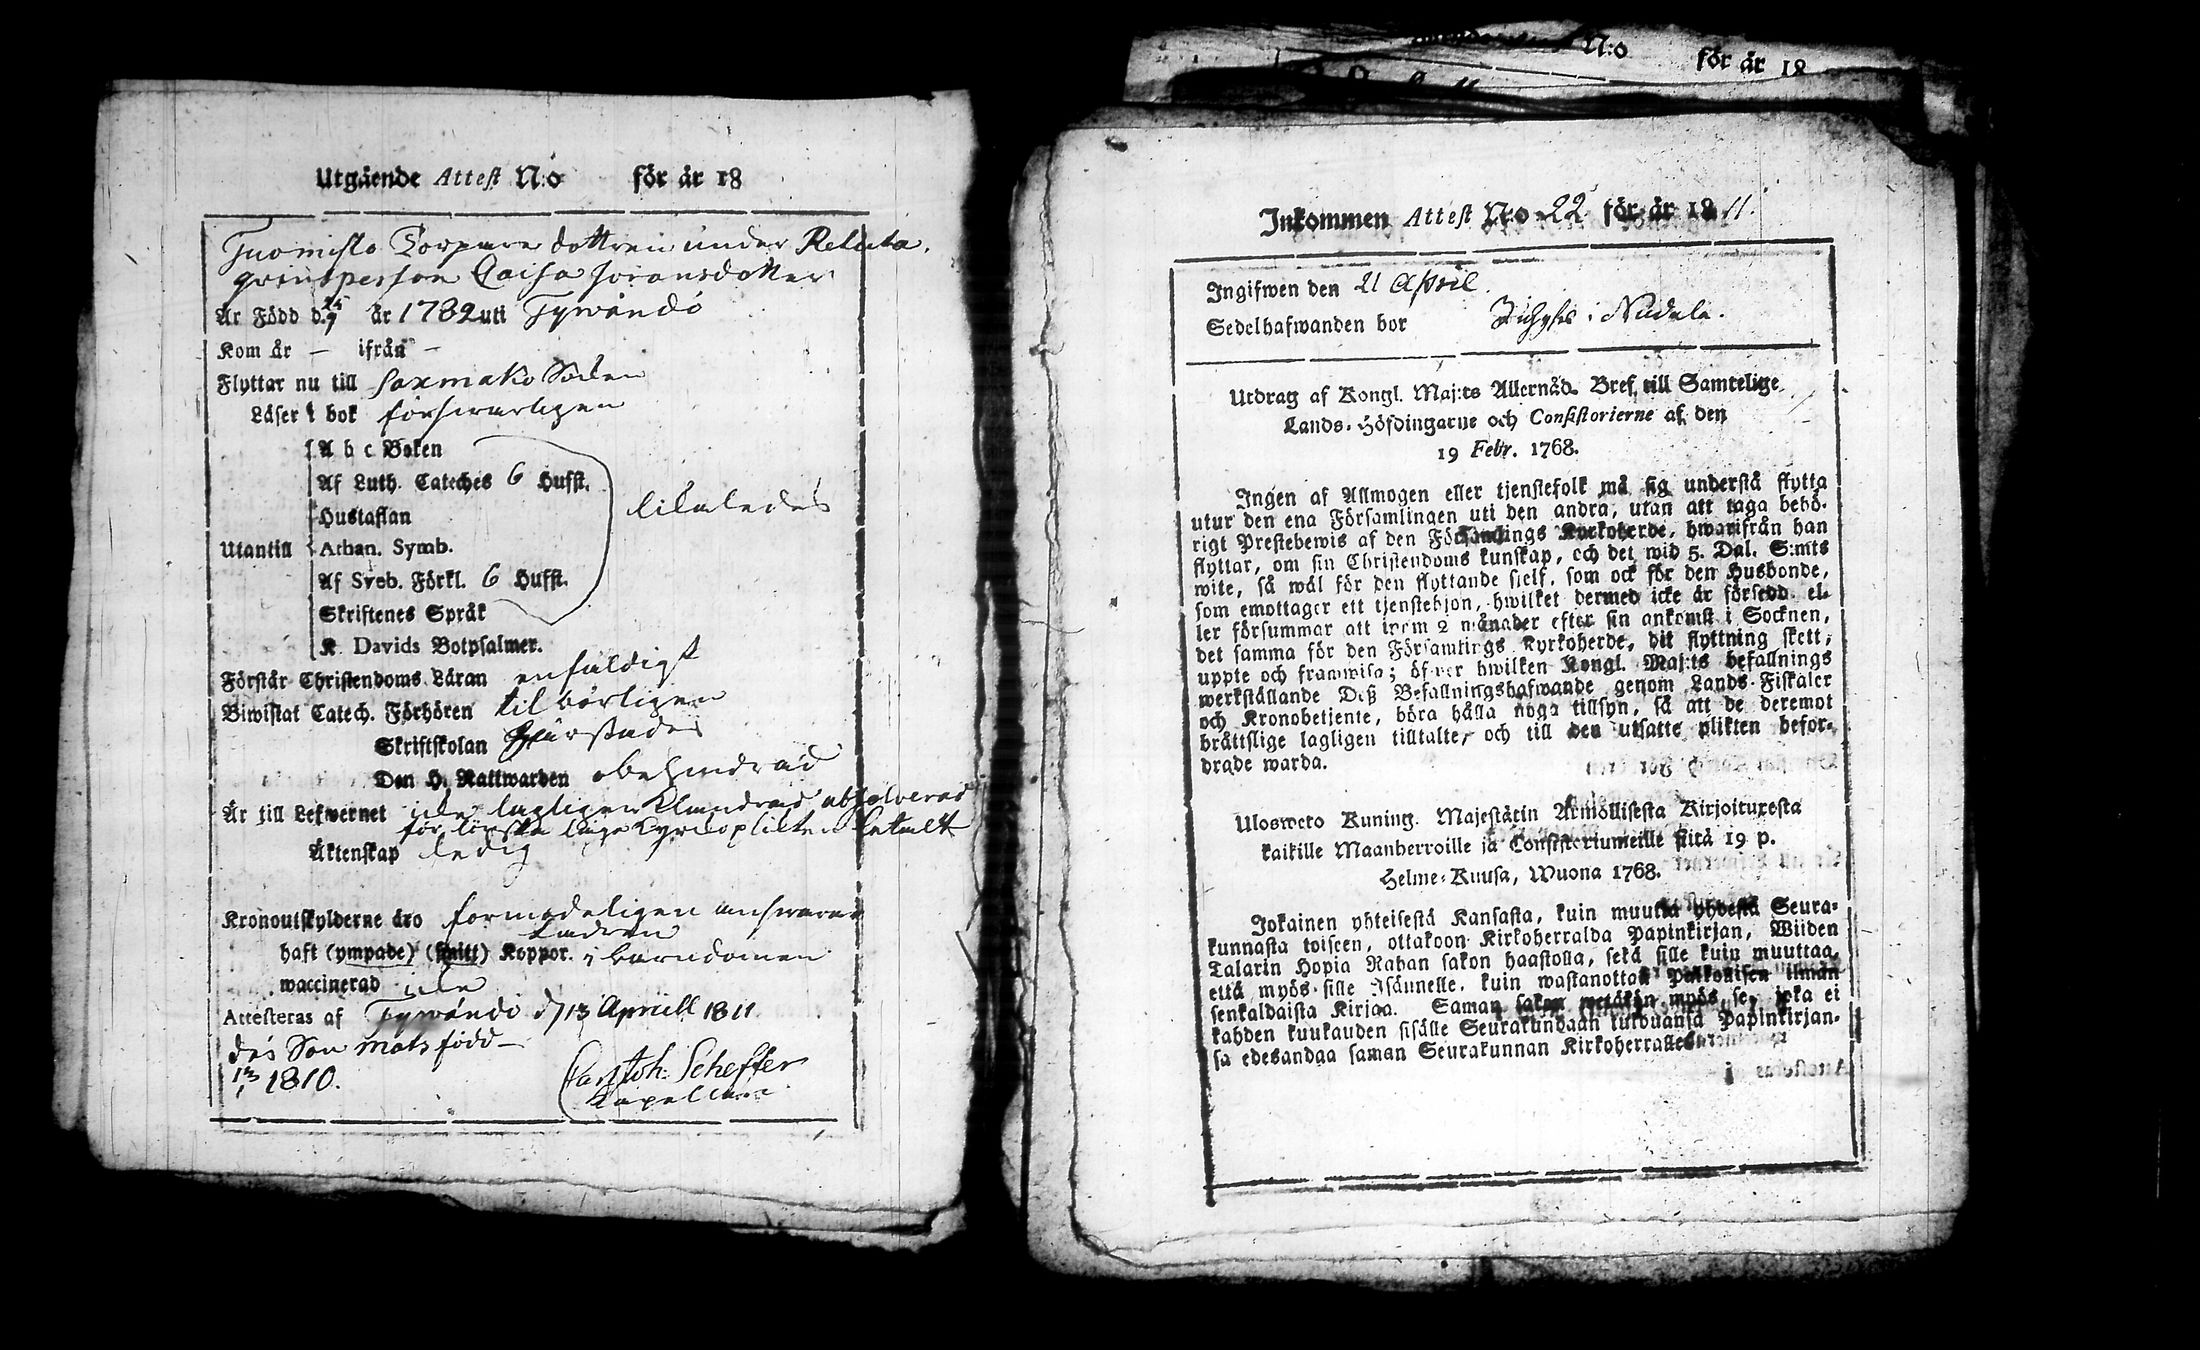 Utgående Attest N:o för år 18
Tuomisto Torpare dottren under
qvinsperson Caisa Joransdotter
Är Född d. 25/7 år 1782 uti Tywändö
Kom år — ifrån —
Flyttar nu till Saxmako Söcken
Läser i bok försvarligen
A b c Boken
Af Luth. Cateches 6 Hufst.
Hustaflan
likaledes
Utantill Athan. Symb.
Af Sveb. Förkl. 6 Hufst.
Skriftenes Språk
K. Davids Botpsalmer.
Förstår Christendoms Läran enfaldigt
Biwistat Catech. Förhören tilbörligen
Skriftskolan
Den H. Nattwarden obehindrad
Är till Lefwernet icke lagligen Klandrad absolverad
för första lägr Kyrkoplikten betalt
Äktenskap ledig
Kronoutskylderne äro förmodeligen answarar
fadren
haft (ympade) (smitt) Koppor. i barndomen
waccinerad icke
Attesteras af Tywändö d 13 Aprill 1811
des Son Mats född —
1810.
Carl Joh: Scheffer
Kapellan
N:o för år 18
Inkommen Attest N:o 22 för år 1811.
Ingifwen den 21 April.
Sedelhafwanden bor i Nådela.
Utdrag af Kongl. Maj:ts Allernåd. Bref till Samtelige
Lands-Höfdingarne och Consistorierne af den
19 Febr. 1768.
Ingen af Allmogen eller tjenstefolk må sig understå flytta
utur den ena Församlingen uti den andra, utan att taga behö-
rigt Prestebewis af den Församlings Kyrkoherde, hwarifrån han
flyttar, om sin Christendoms kunskap, och det wid 5. Dal. S:mts
wite, så wäl för den flyttande sjelf, som ock för den Husbonde,
som emottager ett tjenstehjon, hwilket dermed icke är försedd el-
ler försummar att inom 2 månader efter sin ankomst i Socknen,
det samma för den Församlings Kyrkoherde, dit flyttning skett,
uppte och framwisa; öfwer hwilken Kongl. Maj:ts befallnings
werkställande Deß Befallningshafwande genom Lands-Fiskaler
och Kronobetjente, böra hålla noga tillsyn, så att de deremot
bråttslige lagligen tilltalte, och till den utsatte plikten befor-
drade warda.
Ulosweto Kuning. Majestätin Armollisesta Kirjoituxesta
kaikille Maanherroille ja Consistoriumeille siitä 19 p.
Helme-Kuusa, Wuona 1768.
Jokainen yhteisestä Kansasta, kuin muutta yhdestä Seura-
kunnasta toiseen, ottakoon Kirkoherralda Papinkirjan, Wiiden
Talarin Hopia Rahan sakon haastolla, sekä sille kuin muuttaa,
että myös sille Isännelle, kuin wastanottaa Palkollisen ilman
senkaldaista Kirjaa. Saman sakon wetäkön myös se, joka ei
kahden kuukauden sisälle Seurakundaan tuldwansa Papinkirjan-
sa edesandaa saman Seurakunnan Kirkoherralle